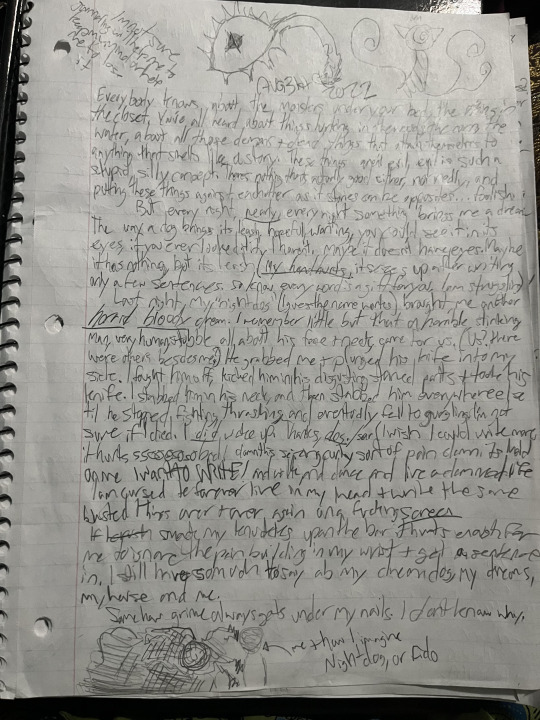 something
AUG 3rd 2022
Everybody knows about the monsters under your bed, the thing in
the closet. You've all heard about things lurking in the
water, about all those demons
anything that smells like a story. These things aren't evil, evil is such a
stupid, silly concept. good either, not really, and
putting these things against eachother as if stories can be opposites... foolish.
But every night, nearly every night something brings me a dream
The way a dog brings its leash, hopeful, wanting, you could see it in its
eyes if you ever looked it in them. Maybe it doesn't have eyes. Maybe
it has nothing but its leash. (My hand hurts, it seizes up after writing
only a few sentences. So know every word is for you, I am struggling)
Last night, My "night dog" (guess the name works) brought me another
horrid bloody dream. I remember little but that a horrible stinking
Man, very human, stubble all about his face + neck, came for us. (Us, there
were others besides me) He grabbed me + plunged his knife into my
side. I fought him off, kicked him in his disgusting + took his
knife. I stabbed him in his neck, and then stabbed him everywhere else
til he stopped fighting, thrashing, and eventually fell to gurgling. I'm not
sure if I died. I did wake up. Thanks, dog. (I wish I could write more,
it hurts so bad, damn this sort of pain damn its hold
on me I want to WRITE! and write and dance and live a damned life
I am cursed to forever live in my head + write the same
busted things over + over again on a fucking screen
I smack my knuckles upon the bar, it hurts enough for
me to ignore the pain building in my wrist + get a sentence
in. I still have so much to say ab my dream dog, my dreams,
my house and me.
Somehow grime always gets under my nails. I don't know why.
me + how I imagine
Night-dog, or Fido